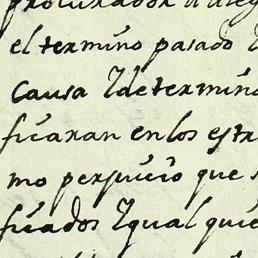 procurador
el termino pasado
Causa Y determino
ficaran en los estr
mo perjuicio que
ficados Y qual quie